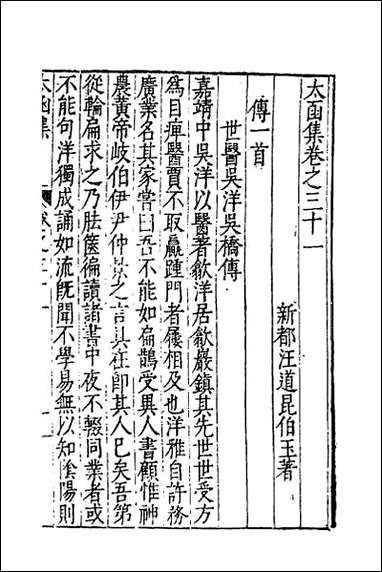 太函集卷之三十一
新都汪道昆伯玉著
傳一首
世醫吳洋吳橋傳
嘉靖中吳洋以醫著歙洋居歙巖鎮其先世世受方
為目痺醫賈不取贏踵門者屨相及也洋雅自許務
廣業名其家嘗曰吾不能如扁鵲受異人書顧惟神
農黃帝岐伯伊尹仲景之言具在即其人已矣吾第
從輪扁求之乃胠篋徧讀諸書中夜不輟同業者或
不能句洋獨成誦如流旣聞不學易無以知陰陽則
太函集